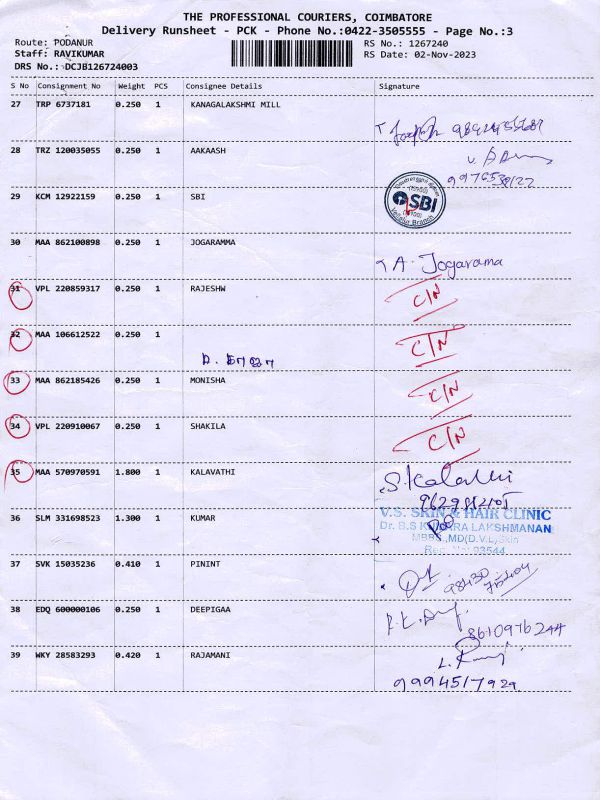 THE PROFESSIONAL COURIERS, COIMBATORE
Delivery Runsheet - PCK - Phone No.:0422-3505555 - Page No.:3
Route: PODANUR RS No.: 1267240
Staff: RAVIKUMAR RS Date: 02-Nov-2023
DRS No.: DCJB126724003
S No Consignment No Weight PCS Consignee Details Signature
27 TRP 6737181 0.250 1 KANAGALAKSHMI MILL
28 TRZ 120035055 0.250 1 AAKAASH
29 KCM 12922159 0.250 1 SBI
SBI
30 MAA 862100898 0.250 1 JOGARAMMA
A. Jogarama
31 VPL 220859317 0.250 1 RAJESHW C/N
32 MAA 106612522 0.250 1 C/N
33 MAA 862185426 0.250 1 MONISHA C/N
34 VPL 220910067 0.250 1 SHAKILA C/N
35 MAA 570970591 1.800 1 KALAVATHI
V.S. SKIN & HAIR CLINIC
36 SLM 331698523 1.300 1 KUMAR
LAKSHMANAN
MBBS.,MD(D.V.L)Skin
Reg. No: 03544
37 SVK 15035236 0.410 1 PININT
38 EDQ 600000106 0.250 1 DEEPIGAA
8610976244
39 WKY 28583293 0.420 1 RAJAMANI
9994517929